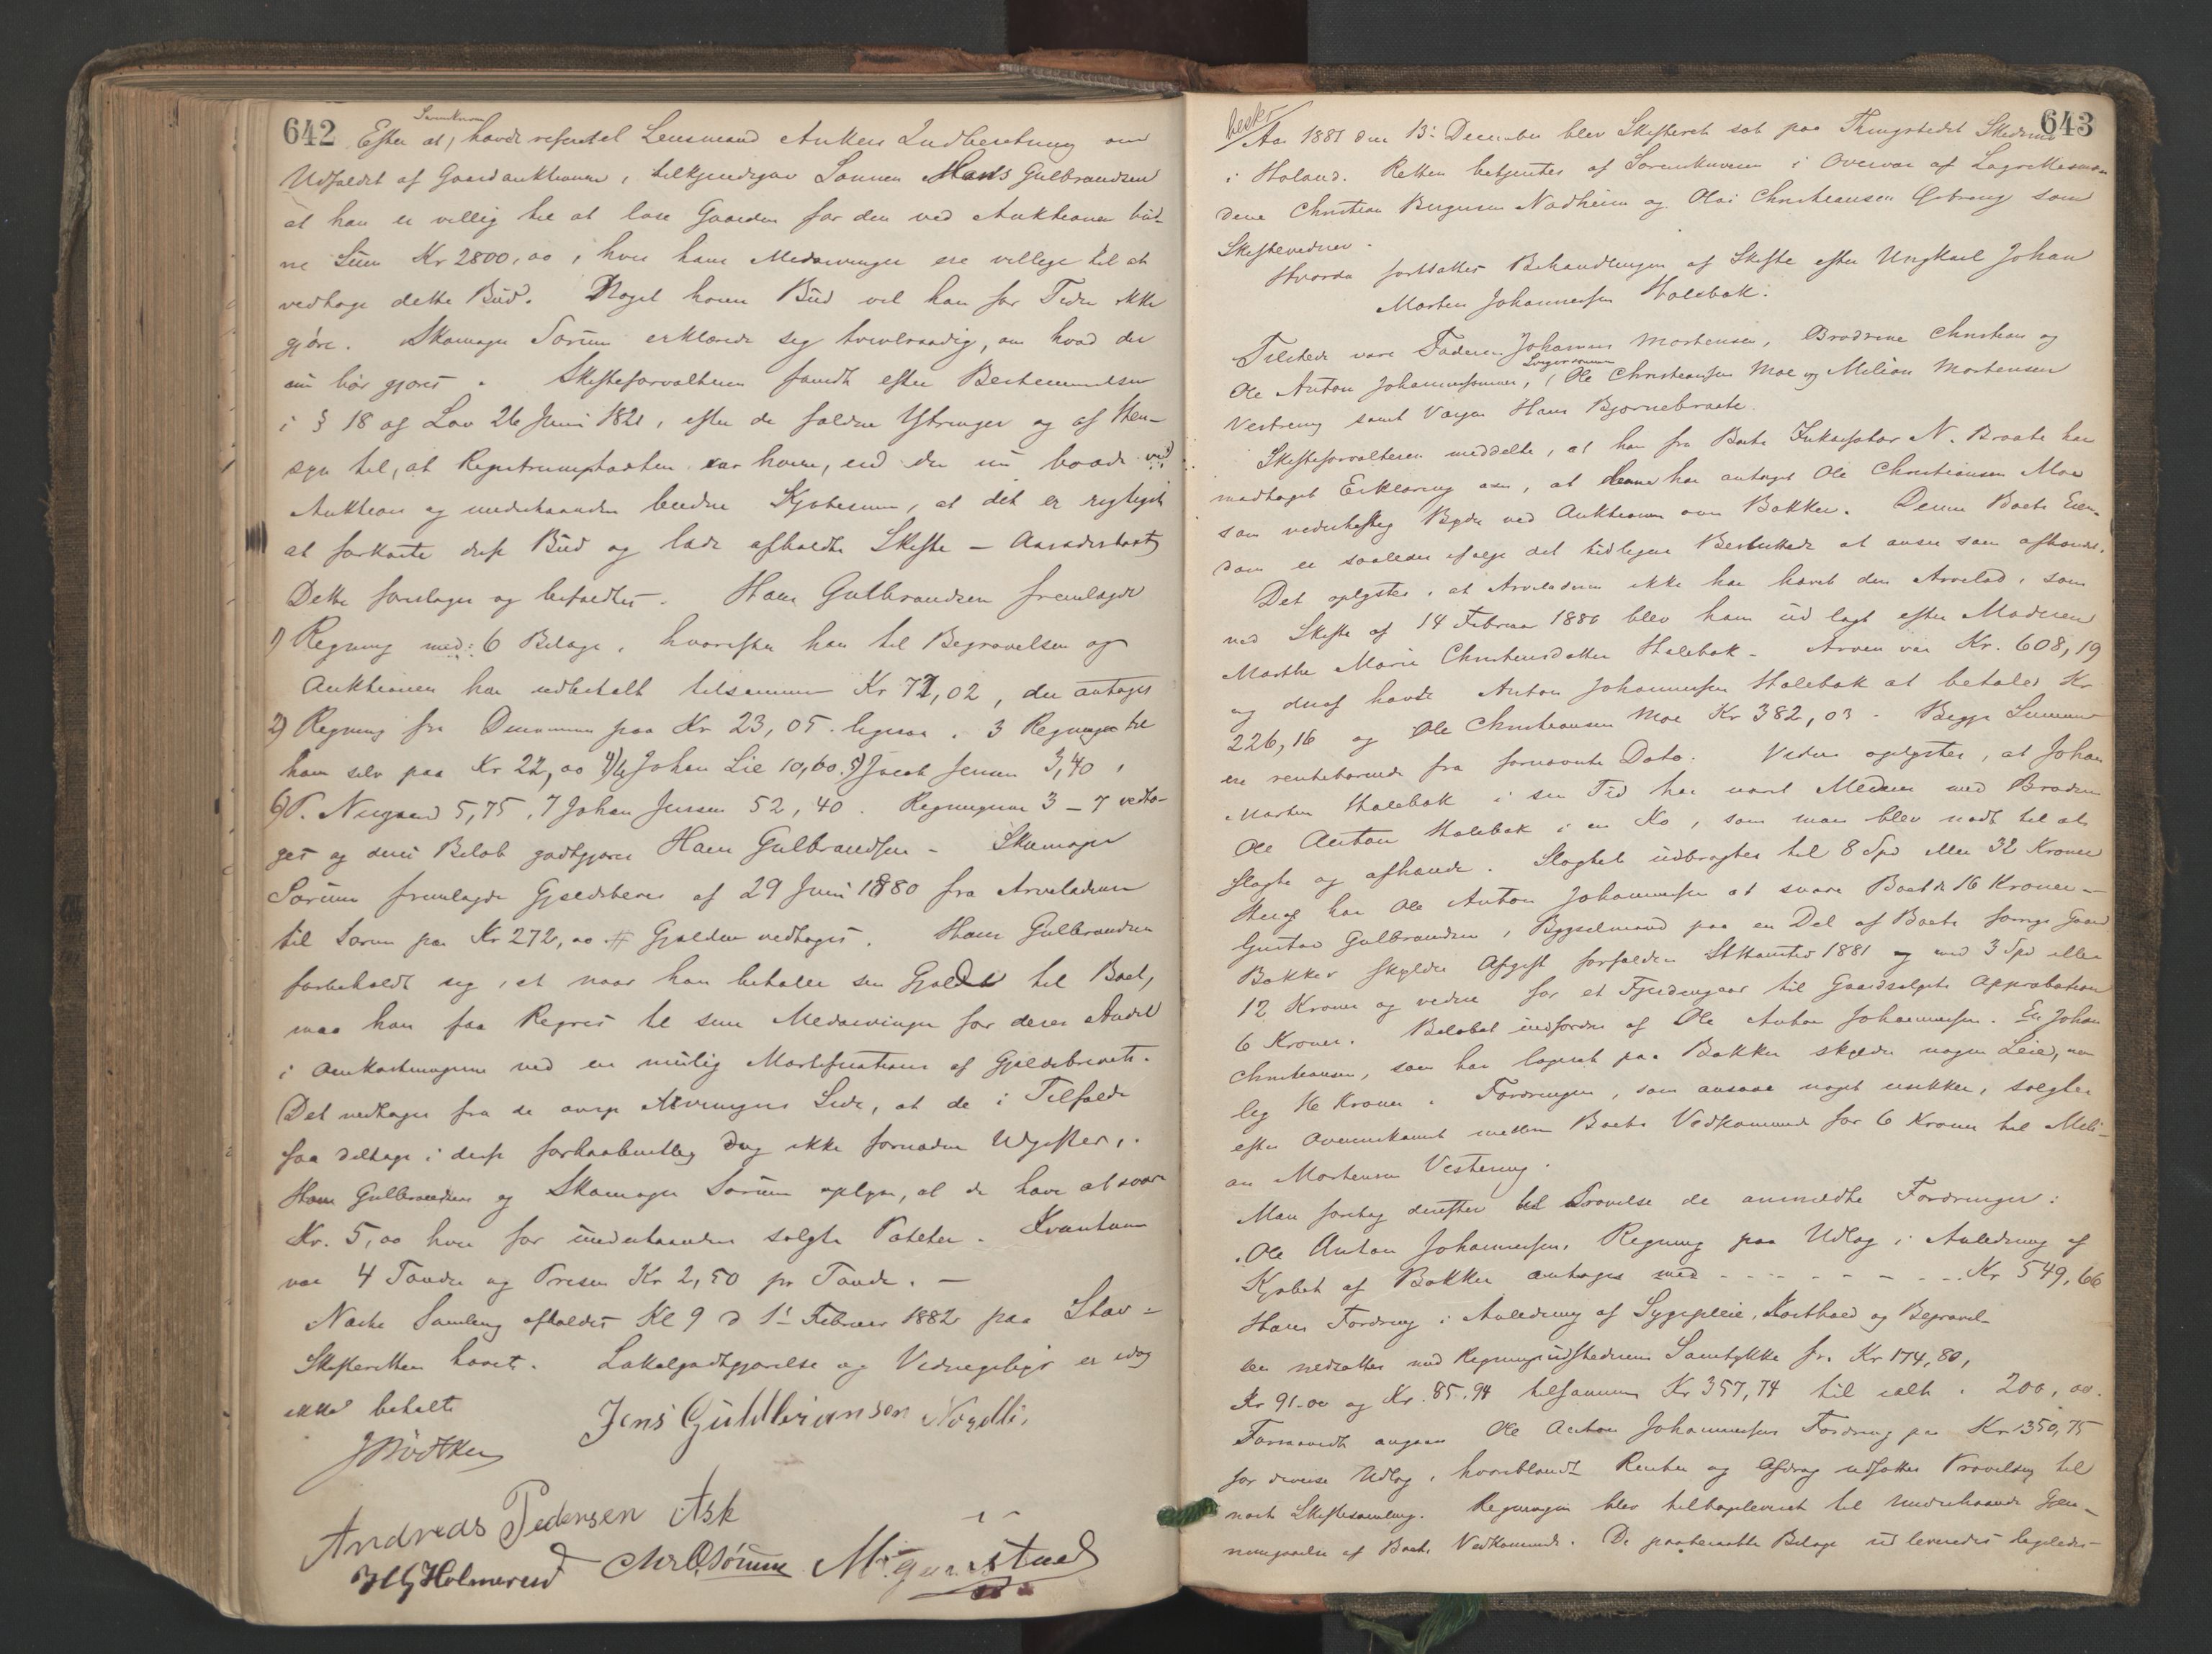 642
Sorenskriv
Efter at, havde refereret Lensmand Ankers Indberetning om
Udfaldet af Gaardauktionen, tilkjendegav Sønnen Hans Gulbrandsen
at han er villig til at løse Gaarden for den ved Auktionen bud-
ne Sum Kr 2800,00, hvis hans Medarvinger ere villige til at
vedtage dette Bud. Noget høiere Bud vil han for Tiden ikke
gjøre. Skomager Sørum erklærede sig tvivlraadig, om hvad der
nu bør gjøres. Skifteforvalteren fandt efter Bestemmelsen
i § 18 af Lov 26 Juni 1821, efter de faldne Ytringer og af Hen-
syn til, at Registrumstaxten var høiere, end den nu baade ved
Auktion og underhaanden budne Kjøbesum, at det er rigtigst
at forkaste disse Bud og lade afholdte Skifte – Aasædestaxt
Dette foretages og befaledes. Hans Gulbrandsen fremlagde
1) Regning med 6 Bilage, hvorefter han til Begravelsen og
Auktionen har udbetalt tilsammen Kr 72,02, der antages
2) Regning fra Denne paa Kr 23,05. ligesaa. 3 Regninger til
ham selv paa Kr 22,00 4) Johan Lie 10,60. 5) Jacob Jensen 3,40,
6) P. Nygaard 5,75, 7 Johan Jensen 52,40. Regningerne 3–7 vedta-
ges og deres Beløb godtgjøres Hans Gulbrandsen – Skomager
Sørum fremlagde Gjeldsbevis af 29 Juni 1880 fra Arveladeren
til Sørum paa Kr 272,00 # Gjælden vedtages. Hans Gulbrandsen
forbeholdt sig, at naar han betaler sin Gjæld til Boet,
maa han faa Regres til sine Medarvinger for deres Andel
i Omkostningerne ved en mulig Mortifikation af Gjeldsbrevet.
Det vedtages fra de øvrige Arvingers Side, at de i Tilfælde
faa deltage i disse forhaabentlig dog ikke fornødne Udgifter.
Hans Gulbrandsen og Skomager Sørum oplyse, at de have at svare
Kr. 5,00 hver for underhaanden solgte Poteter. Kvantum
var 4 Tønder og Prisen Kr 2,50 pr Tønde. –
Næste Samling afholdes Kl 9 d 1ste Februar 1882 paa Stav-
Skifteretten hævet. Lokalgodtgjørelse og Vidnegebyr er idag
ikke betalt
JBødtker
Jens Guldbransen Nordli
Andreas Pedersen Ask
HGHolmerud ChrOSørum
643
beskr
Aar 1881 den 13de December blev Skifteret sat paa Thingstedet Skedsmo
i Høland. Retten betjentes af Sorenskriveren i Overvær af Lagrettesmæn-
dene Christian Bergersen Nadheim og Olai Christiansen Østreng som
Skiftevidner.
Hvorda fortsattes Behandlingen af Skifte efter Ungkarl Johan
Morten Johannesen Holebæk.
Tilstede vare Faderen Johannes Mortensen, Brødrene Christian og
Svogersønnerne
Ole Anton Johannessønner, Ole Christiansen Moe og Milian Mortensen
Vestreng samt Værgen Hans Bjørnebraate.
Skifteforvalteren meddelte, at han fra Boets Inkassator N. Braate har
modtaget Erklæring om, at denne har antaget Ole Christiansen Moe
som vederheftig Byder ved Auktionen over Bakker. Denne Boets Eien-
dom er saaledes ifølge det tidligere Besluttede at anse som afhændet.
Det oplystes, at Arveladeren ikke har hævet den Arvelod, som
ved Skifte af 14 Februar 1880 blev ham udlagt efter Moderen
Marthe Marie Christensdatter Holebæk – Arven var Kr. 608,19
og deraf havde Anton Johannessen Holebæk at betale Kr
226,16 og Ole Christiansen Moe Kr 382,03. Begge Summer
ere rentebærende fra fornævnte Dato. Videre oplystes, at Johan
Morten Holebæk i sin Tid har været Medeier med Broderen
Ole Anton Holebæk i en Ko, som man blev nødt til at
slagte og afhænde. Slagtet udbragtes til 8 Spd eller 32 Kroner
Heraf har Ole Anton Johannessen at svare Boet de 16 Kroner –
Gustav Gulbrandsen, Bygselmand paa en Del af Boets forrige Gaard
Bakker skylder Afgift forfalden Sthanstid 1881 med 3 Spd eller
12 Kroner og videre for et Fjerdingaar til Gaardsalgets Approbation
6 Kroner. Beløbet indfordres af Ole Anton Johannessen. En Johan
Christiansen, som har logeret paa Bakker skylder nogen Leie, nem-
lig 16 Kroner. Fordringen, som ansaaes noget usikker, solgtes
efter Overenskomst mellem Boets Vedkommende for 6 Kroner til Mili-
an Mortensen Vestreng.
Man foretog derefter til Prøvelse de anmeldte Fordringer:
Ole Anton Johannessen. Regning paa Udlæg i Anledning af
Kjøbet af Bakker antages med - - - - - - - Kr 549,66
Hans Fordring i Anledning af Sygepleie, Kosthold og Begravel-
sen nedsattes med Regningsudstederens Samtykke fra Kr 174,80,
Kr 91.00 og Kr. 85.94 tilsammen Kr 357,74 til ialt. 200,00.
Forsaavidt angaar Ole Anton Johannessens Fordring paa Kr 350,75
for diverse Udlæg, hvoriblandt Renter og Afdrag udsattes Prøvelsen til
næste Skiftesamling. Regningen blev tilbageleveret til underhaands Gjen-
nemgaaelse af Boets Vedkommende. De paaberaabte Bilage udleveredes ligeledes –